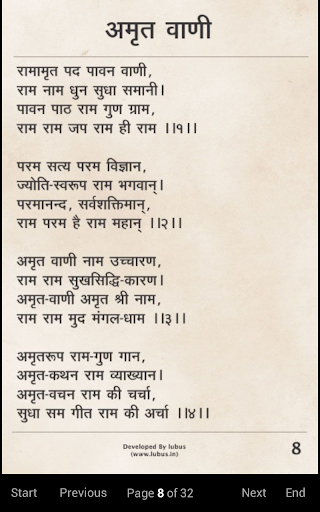 अमृत वाणी
रामामृत पद पावन वाणी,
राम नाम धुन सुधा समानी।
पावन पाठ राम गुण ग्राम,
राम राम जप राम ही राम ।।१।।
परम सत्य परम विज्ञान,
ज्योति-स्वरूप राम भगवान्।
परमानन्द, सर्वशक्तिमान्,
राम परम है राम महान् ।।२।।
अमृत वाणी नाम उच्चारण,
राम राम सुखसिद्धि-कारण।
अमृत-वाणी अमृत श्री नाम,
राम राम मुद मंगल-धाम ।।३।।
अमृतरूप राम-गुण गान,
अमृत-कथन राम व्याख्यान।
अमृत-वचन राम की चर्चा,
सुधा सम गीत राम की अर्चा ।।४।।
Developed By lubus
(www.lubus.in)
8
Start Previous Page 8 of 32 Next End